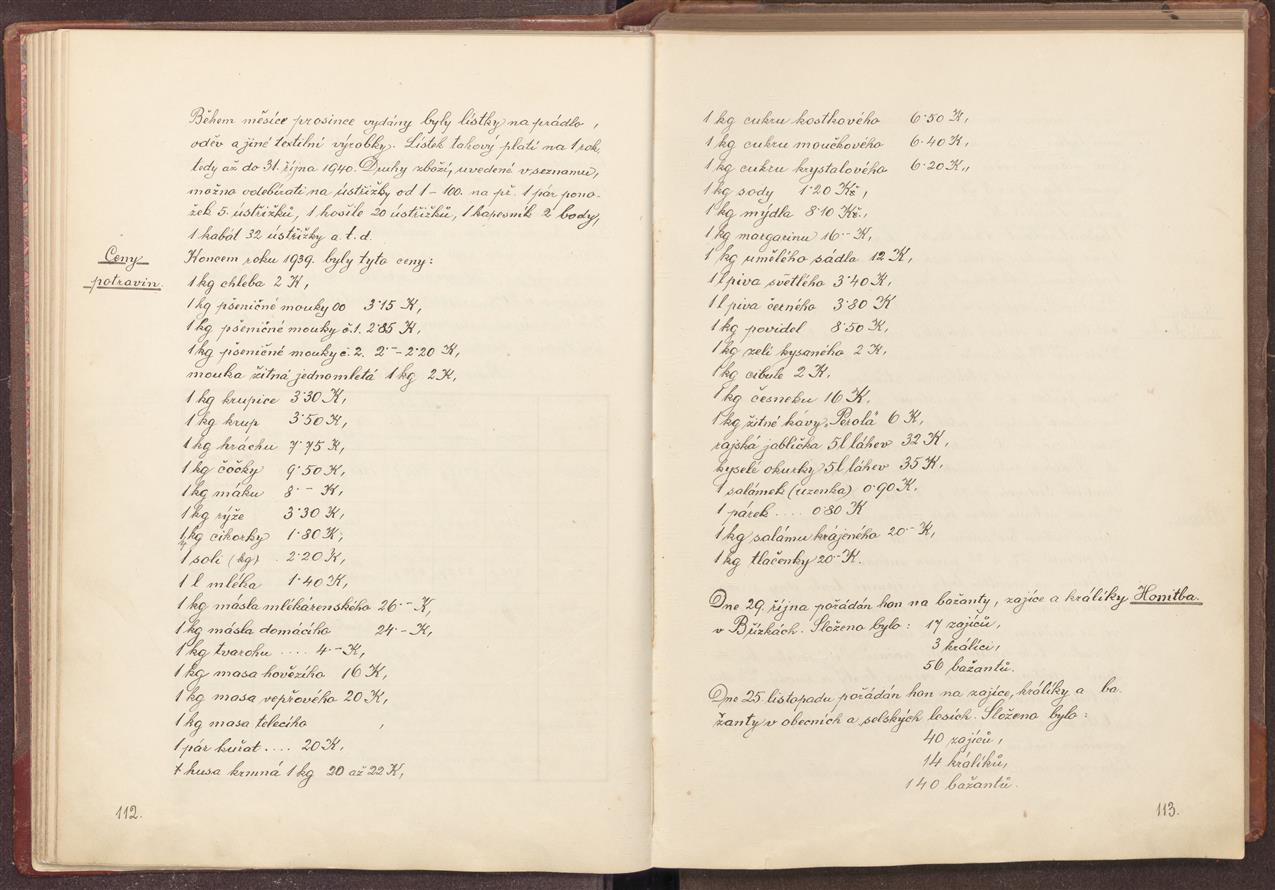 Během měsíce prosince vydány byly lístky na prádlo,
oděv a jiné textilní výrobky. Lístek takový platí na 1 rok,
tedy až do 31. října 1940. Druhy zboží, uvedené v seznamu,
možno odebírati na ústřižky od 1 – 100. na př. 1 pár pono-
žek 5 ústřižků, 1 košile 20 ústřižků, 1 kapesník 2 body,
1 kabát 32 ústřižky a t. d.
Ceny
potravin.
Koncem roku 1939. byly tyto ceny:
1 kg chleba 2 K,
1 kg pšeničné mouky 00 3·15 K,
1 kg pšeničné mouky č. 1. 2·85 K,
1 kg pšeničné mouky č. 2. 2·– – 2·20 K,
mouka žitná jednomletá 1 kg 2 K,
1 kg krupice 3·30 K,
1 kg krup 3·50 K,
1 kg hráchu 7·75 K,
1 kg čočky 9·50 K,
1 kg máku 8·– K,
1 kg rýže 3·30 K,
kg cikorky 1·80 K,
1 soli (kg) . 2·20 K,
1 l mléka 1·40 K,
1 kg másla mlékárenského 26·– K,
1 kg másla domácího 24·– K,
1 kg tvarohu .... 4·– K,
1 kg masa hovězího 16 K,
1 kg masa vepřového 20 K,
1 kg masa telecího ,
1 pár kuřat .... 20 K,
husa krmná 1 kg 20 až 22 K,
112.
1 kg cukru kostkového 6·50 K,
1 kg cukru moučkového 6·40 K,
1 kg cukru krystalového 6·20 K,
1 kg sody 1·20 Kč,
1 kg mýdla 8·10 Kč,
1 kg margarinu 16·– K,
1 kg umělého sádla 12 K,
1 l piva světlého 3·40 K,
1 l piva černého 3·80 K
1 kg povidel 8·50 K,
1 kg zelí kysaného 2 K,
1 kg cibule 2 K,
1 kg česneku 16 K,
1 kg žitné kávy „Perola" 6 K,
rajská jablíčka 5 l láhev 32 K,
kyselé okurky 5 l láhev 35 K,
1 salámek (uzenka) 0·90 K,
1 párek .... 0·80 K
1 kg salámu krájeného 20·– K,
1 kg tlačenky 20·– K.
Dne 29. října pořádán hon na bažanty, zajíce a králíky Honitba.
v Bůzkách. Složeno bylo: 17 zajíců,
3 králíci,
56 bažantů.
Dne 25. listopadu pořádán hon na zajíce, králíky a ba-
žanty v obecních a selských lesích. Složeno bylo:
40 zajíců,
14 králíků,
140 bažantů.
113.